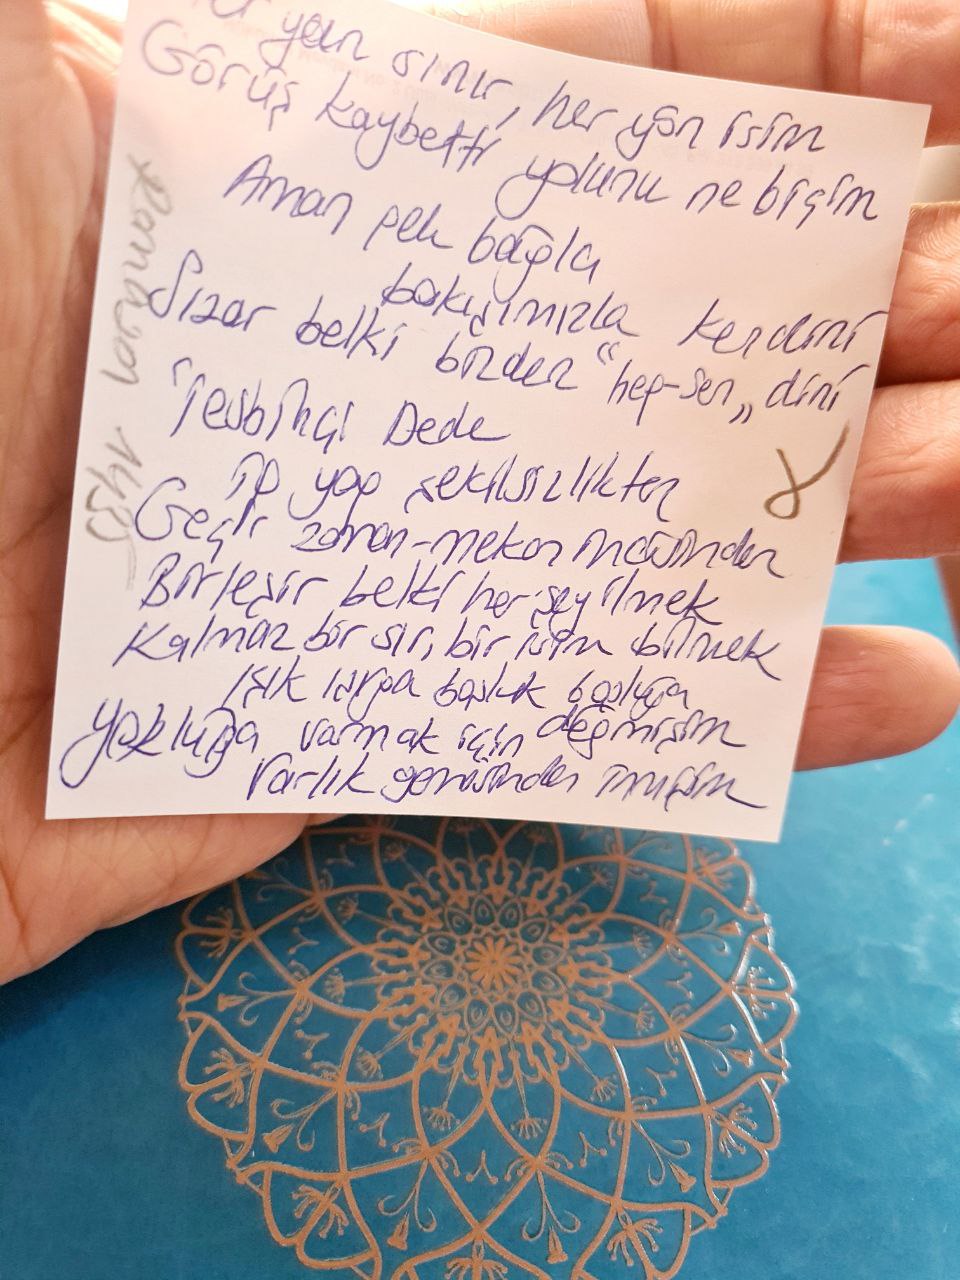 yan sınır, her yön isim
Görüş kaybetti yolunu ne biçim
Aman pek bağla
bakışımızla kendini
Sızar belki bizden "hep-sen" dini
Tesbihçi Dede
İp yap şekilsizlikten
Geçir zaman-mekan inasından
Birleşir belki her şey ilmek
Kalmaz bir sır, bir isim bilmek
Işık ışığa boşluk boşluğa
Yokluğa varmak için değmişim
Varlık gemisinden inmişim
Ramazan 1435